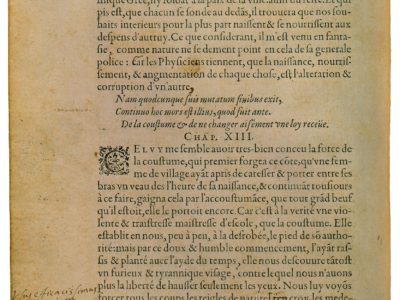 pis est, que chacun se sonde au dedãs, il trouuera que nos sou-
haits interieurs pour la plus part naissent & se nourrissent aux
despens d'autruy. Ce que considerant, il m'est venu en fanta-
sie, comme nature ne se dement point en cela de sa generale
police: car les Physiciens tiennent, que la naissance, nourris-
sement, & augmentation de chaque chose, est l'alteration &
corruption d'vn'autre,
Nam quodcunque suis mutatum finibus exit,
Continuo hoc mors est illius, quod fuit ante.
De la coustume & de ne changer aisément vne loy receüe.
CHAP. XIII.
CELVY me semble auoir tres-bien conceu la force de
la coustume, qui premier forgea ce cõte, qu'vne fem-
me de village ayãt apris de caresser & porter entre ses
bras vn veau des l'heure de sa naissance, & continuãt tousiours
à ce faire, gaigna cela par l'accoustumãce, que tout grãd beuf
qu'il estoit, elle le portoit encore. Car c'est à la verité vne vio-
lente & traistresse maistresse d'escole, que la coustume. Elle
establit en nous, peu à peu, à la desrobée, le pied de sõ autho-
rité: mais par ce doux & humble commencement, l'ayãt ras-
sis & planté auec l'ayde du temps, elle nous descouure tãtost
vn furieux & tyrannique visage, contre lequel nous n'auons
plus la liberté de hausser seulement les yeux. Nous luy voyõs
forcer tous les coups les reigles de nature